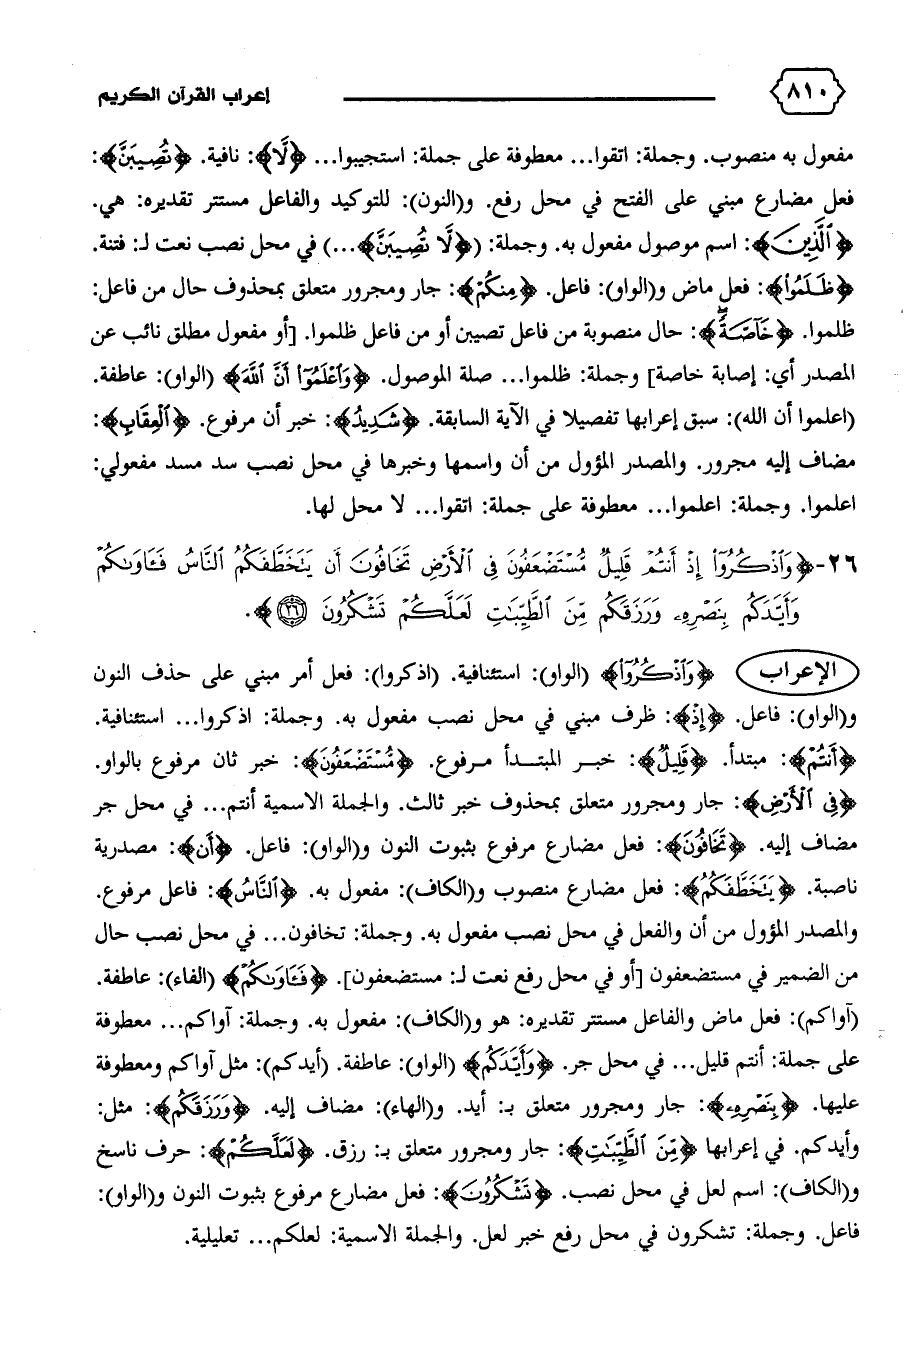 ٨١٠ إعراب القرآن الكريم
مفعول به منصوب. وجملة: اتقوا... معطوفة على جملة: استجيبوا... ﴿لَّا﴾: نافية. ﴿تُصِيبَنَّ﴾:
فعل مضارع مبني على الفتح في محل رفع. و(النون): للتوكيد والفاعل مستتر تقديره: هي.
﴿ٱلَّذِينَ﴾: اسم موصول مفعول به. وجملة: (﴿لَّا تُصِيبَنَّ﴾...) في محل نصب نعت لـ: فتنة.
﴿ظَلَمُوا۟﴾: فعل ماض و(الواو): فاعل. ﴿مِنكُمْ﴾: جار ومجرور متعلق بمحذوف حال من فاعل:
ظلموا. ﴿خَآصَّةً﴾: حال منصوبة من فاعل تصيبن أو من فاعل ظلموا. [أو مفعول مطلق نائب عن
المصدر أي: إصابة خاصة] وجملة: ظلموا... صلة الموصول. ﴿وَٱعْلَمُوٓا۟ أَنَّ ٱللَّهَ﴾ (الواو): عاطفة.
(اعلموا أن الله): سبق إعرابها تفصيلا في الآية السابقة. ﴿شَدِيدُ﴾: خبر أن مرفوع. ﴿ٱلْعِقَابِ﴾:
مضاف إليه مجرور. والمصدر المؤول من أن واسمها وخبرها في محل نصب سد مسد مفعولي:
اعلموا. وجملة: اعلموا... معطوفة على جملة: اتقوا... لا محل لها.
٢٦-﴿وَٱذْكُرُوٓا۟ إِذْ أَنتُمْ قَلِيلٌ مُّسْتَضْعَفُونَ فِى ٱلْأَرْضِ تَخَافُونَ أَن يَتَخَطَّفَكُمُ ٱلنَّاسُ فَـَٔاوَىٰكُمْ
وَأَيَّدَكُم بِنَصْرِهِۦ وَرَزَقَكُم مِّنَ ٱلطَّيِّبَـٰتِ لَعَلَّكُمْ تَشْكُرُونَ ٢٦﴾.
الإعراب ﴿وَٱذْكُرُوٓا۟﴾ (الواو): استئنافية. (اذكروا): فعل أمر مبني على حذف النون
و(الواو): فاعل. ﴿إِذْ﴾: ظرف مبني في محل نصب مفعول به. وجملة: اذكروا... استئنافية.
﴿أَنتُمْ﴾: مبتدأ. ﴿قَلِيلٌ﴾: خبر المبتدأ مرفوع. ﴿مُّسْتَضْعَفُونَ﴾: خبر ثان مرفوع بالواو.
﴿فِى ٱلْأَرْضِ﴾: جار ومجرور متعلق بمحذوف خبر ثالث. والجملة الاسمية أنتم... في محل جر
مضاف إليه. ﴿تَخَافُونَ﴾: فعل مضارع مرفوع بثبوت النون و(الواو): فاعل. ﴿أَن﴾: مصدرية
ناصبة. ﴿يَتَخَطَّفَكُمُ﴾: فعل مضارع منصوب و(الكاف): مفعول به. ﴿ٱلنَّاسُ﴾: فاعل مرفوع.
والمصدر المؤول من أن والفعل في محل نصب مفعول به. وجملة: تخافون... في محل نصب حال
من الضمير في مستضعفون [أو في محل رفع نعت لـ: مستضعفون]. ﴿فَـَٔاوَىٰكُمْ﴾ (الفاء): عاطفة.
(آواكم): فعل ماض والفاعل مستتر تقديره: هو و(الكاف): مفعول به. وجملة: آواكم... معطوفة
على جملة: أنتم قليل... في محل جر. ﴿وَأَيَّدَكُم﴾ (الواو): عاطفة. (أيدكم): مثل آواكم ومعطوفة
عليها. ﴿بِنَصْرِهِۦ﴾: جار ومجرور متعلق بـ: أيد. و(الهاء): مضاف إليه. ﴿وَرَزَقَكُم﴾: مثل:
وأيدكم. في إعرابها ﴿مِّنَ ٱلطَّيِّبَـٰتِ﴾: جار ومجرور متعلق بـ: رزق. ﴿لَعَلَّكُمْ﴾: حرف ناسخ
و(الكاف): اسم لعل في محل نصب. ﴿تَشْكُرُونَ﴾: فعل مضارع مرفوع بثبوت النون و(الواو):
فاعل. وجملة: تشكرون في محل رفع خبر لعل. والجملة الاسمية: لعلكم... تعليلية.